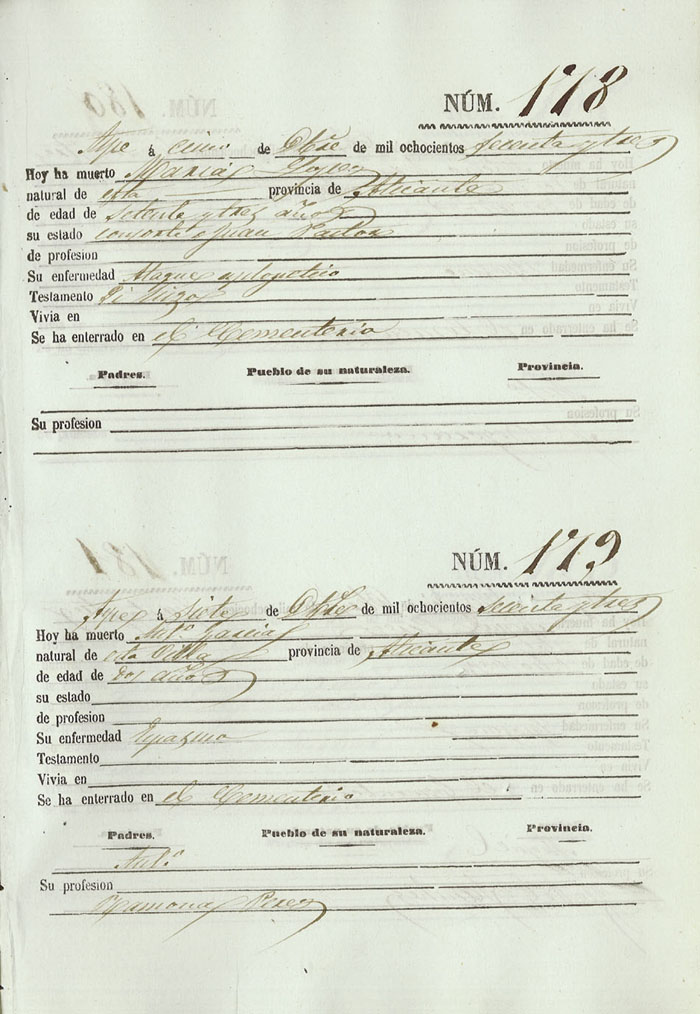 NÚM. 178
Aspe á cinco de Dbre de mil ochocientos sesenta y tres
Hoy ha muerto Maria
natural de esta provincia de Alicante
de edad de setenta y tres años
su estado consorte de Juan Pastor
de profesion
Su enfermedad Ataque
Testamento Si hizo
Vivia en
Se ha enterrado en el Cementerio
Padres. Pueblo de su naturaleza. Provincia.
Su profesion
NÚM. 179
Aspe á siete de Dbre de mil ochocientos sesenta y tres
Hoy ha muerto Ant.º Garcia
natural de esta Villa provincia de Alicante
de edad de dos años
su estado
de profesion
Su enfermedad Espasmo
Testamento
Vivia en
Se ha enterrado en el Cementerio
Padres. Pueblo de su naturaleza. Provincia.
Ant.º
Su profesion
Ramona Perez